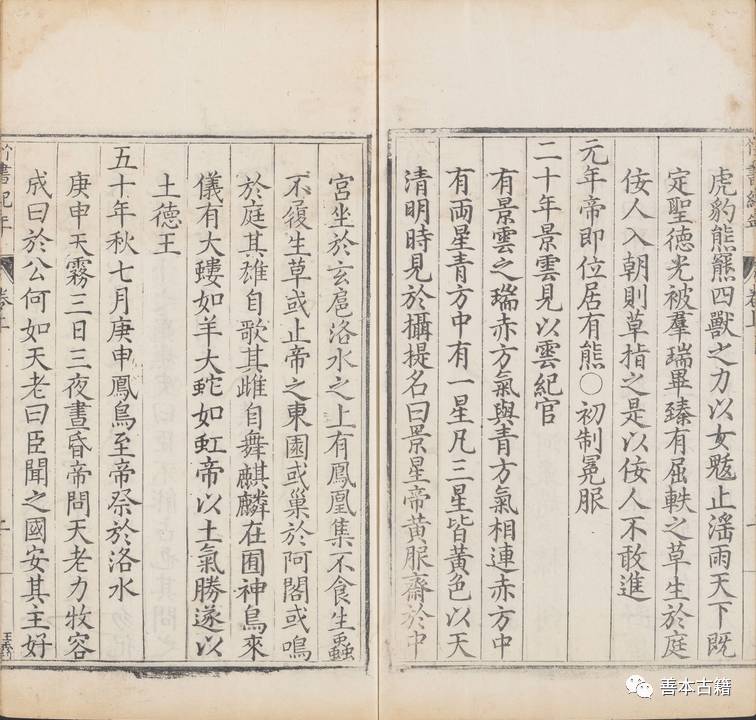 虎豹熊羆四獸之力以女魃止滛雨天下既
定聖德光被羣瑞畢臻有屈軼之草生於庭
佞人入朝則草指之是以佞人不敢進
元年帝即位居有熊○初制冕服
二十年景雲見以雲紀官
有景雲之瑞赤方氣與青方氣相連赤方中
有兩星青方中有一星凡三星皆黃色以天
清明時見於攝提名曰景星帝黃服齋於中
宮坐於玄扈洛水之上有鳳凰集不食生蟲
不履生草或止帝之東園或巢於阿閣或鳴
於庭其雄自歌其雌自舞麒麟在囿神鳥來
儀有大螻如羊大螾如虹帝以土氣勝遂以
土德王
五十年秋七月庚申鳳鳥至帝祭於洛水
庚申天霧三日三夜晝昏帝問天老力牧容
成曰於公何如天老曰臣聞之國安其主好
竹書紀年
善本古籍